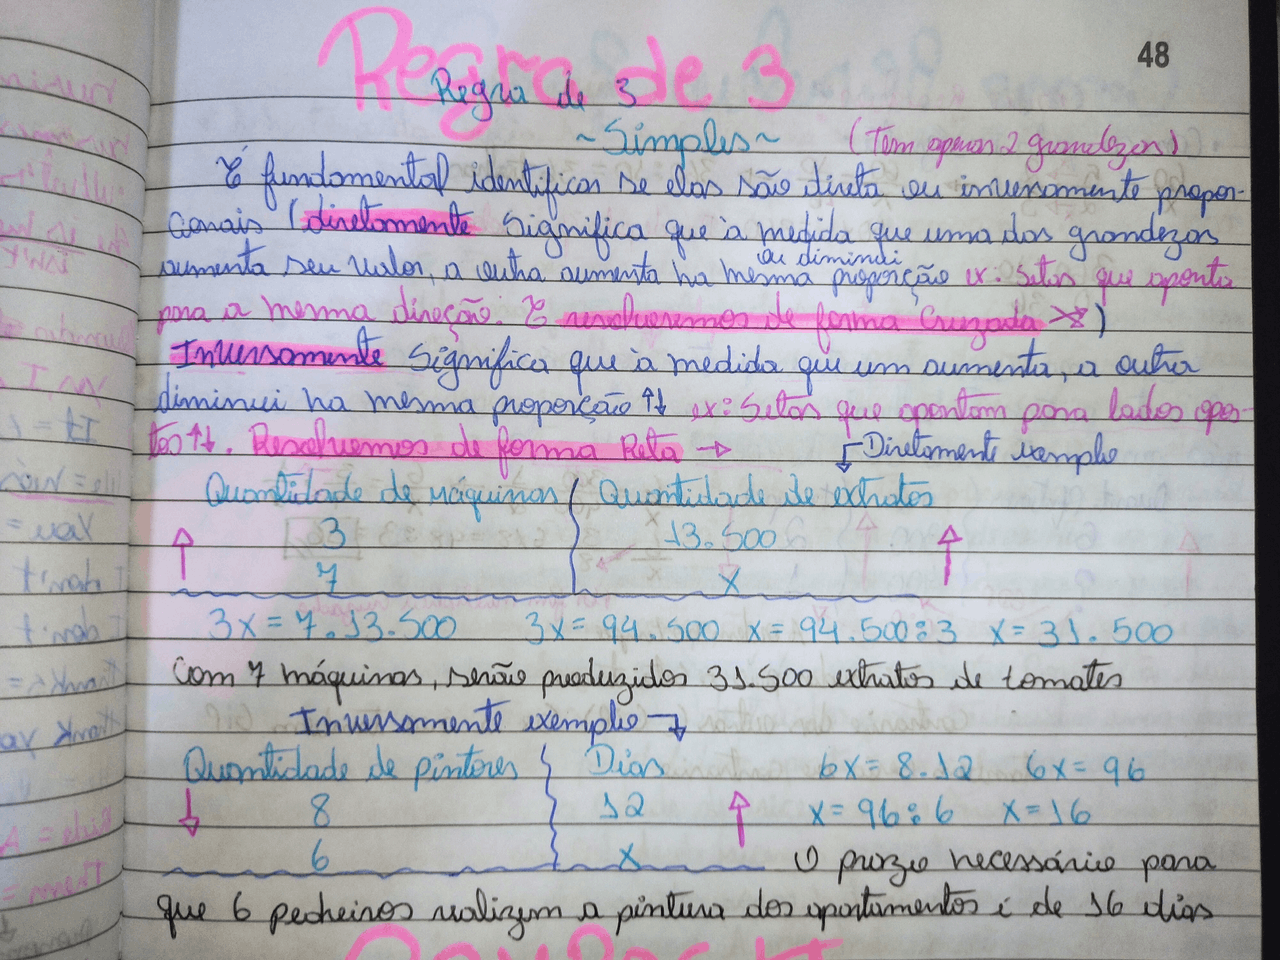 48
Regra de 3
Regra de 3
~Simples~ (Tem apenas 2 grandezas)
É fundamental identificar se elas são direta ou inversamente propor-
cionais (diretamente significa que à medida que uma das grandezas
ou diminui
aumenta seu valor, a outra aumenta na mesma proporção ex. Setas que aponta
para a mesma direção. E resolveremos de forma cruzada )
Inversamente significa que à medida que um aumenta, a outra
diminui na mesma proporção ↑↓ ex: Setas que apontam para lados opos-
tos ↑↓. Resolvemos de forma Reta → Diretamente exemplo
Quantidade de máquinas Quantidade de extratos
↑ 3 13.500 ↑
7 x
3x = 7.13.500 3x = 94.500 x = 94.500:3 x = 31.500
Com 7 máquinas, serão produzidos 31.500 extratos de tomates
Inversamente exemplo
Quantidade de pintores Dias 6x = 8.12 6x = 96
↓ 8 12 ↑ x = 96:6 x = 16
6 x O prazo necessário para
que 6 pedreiros realizem a pintura dos apontamentos é de 16 dias